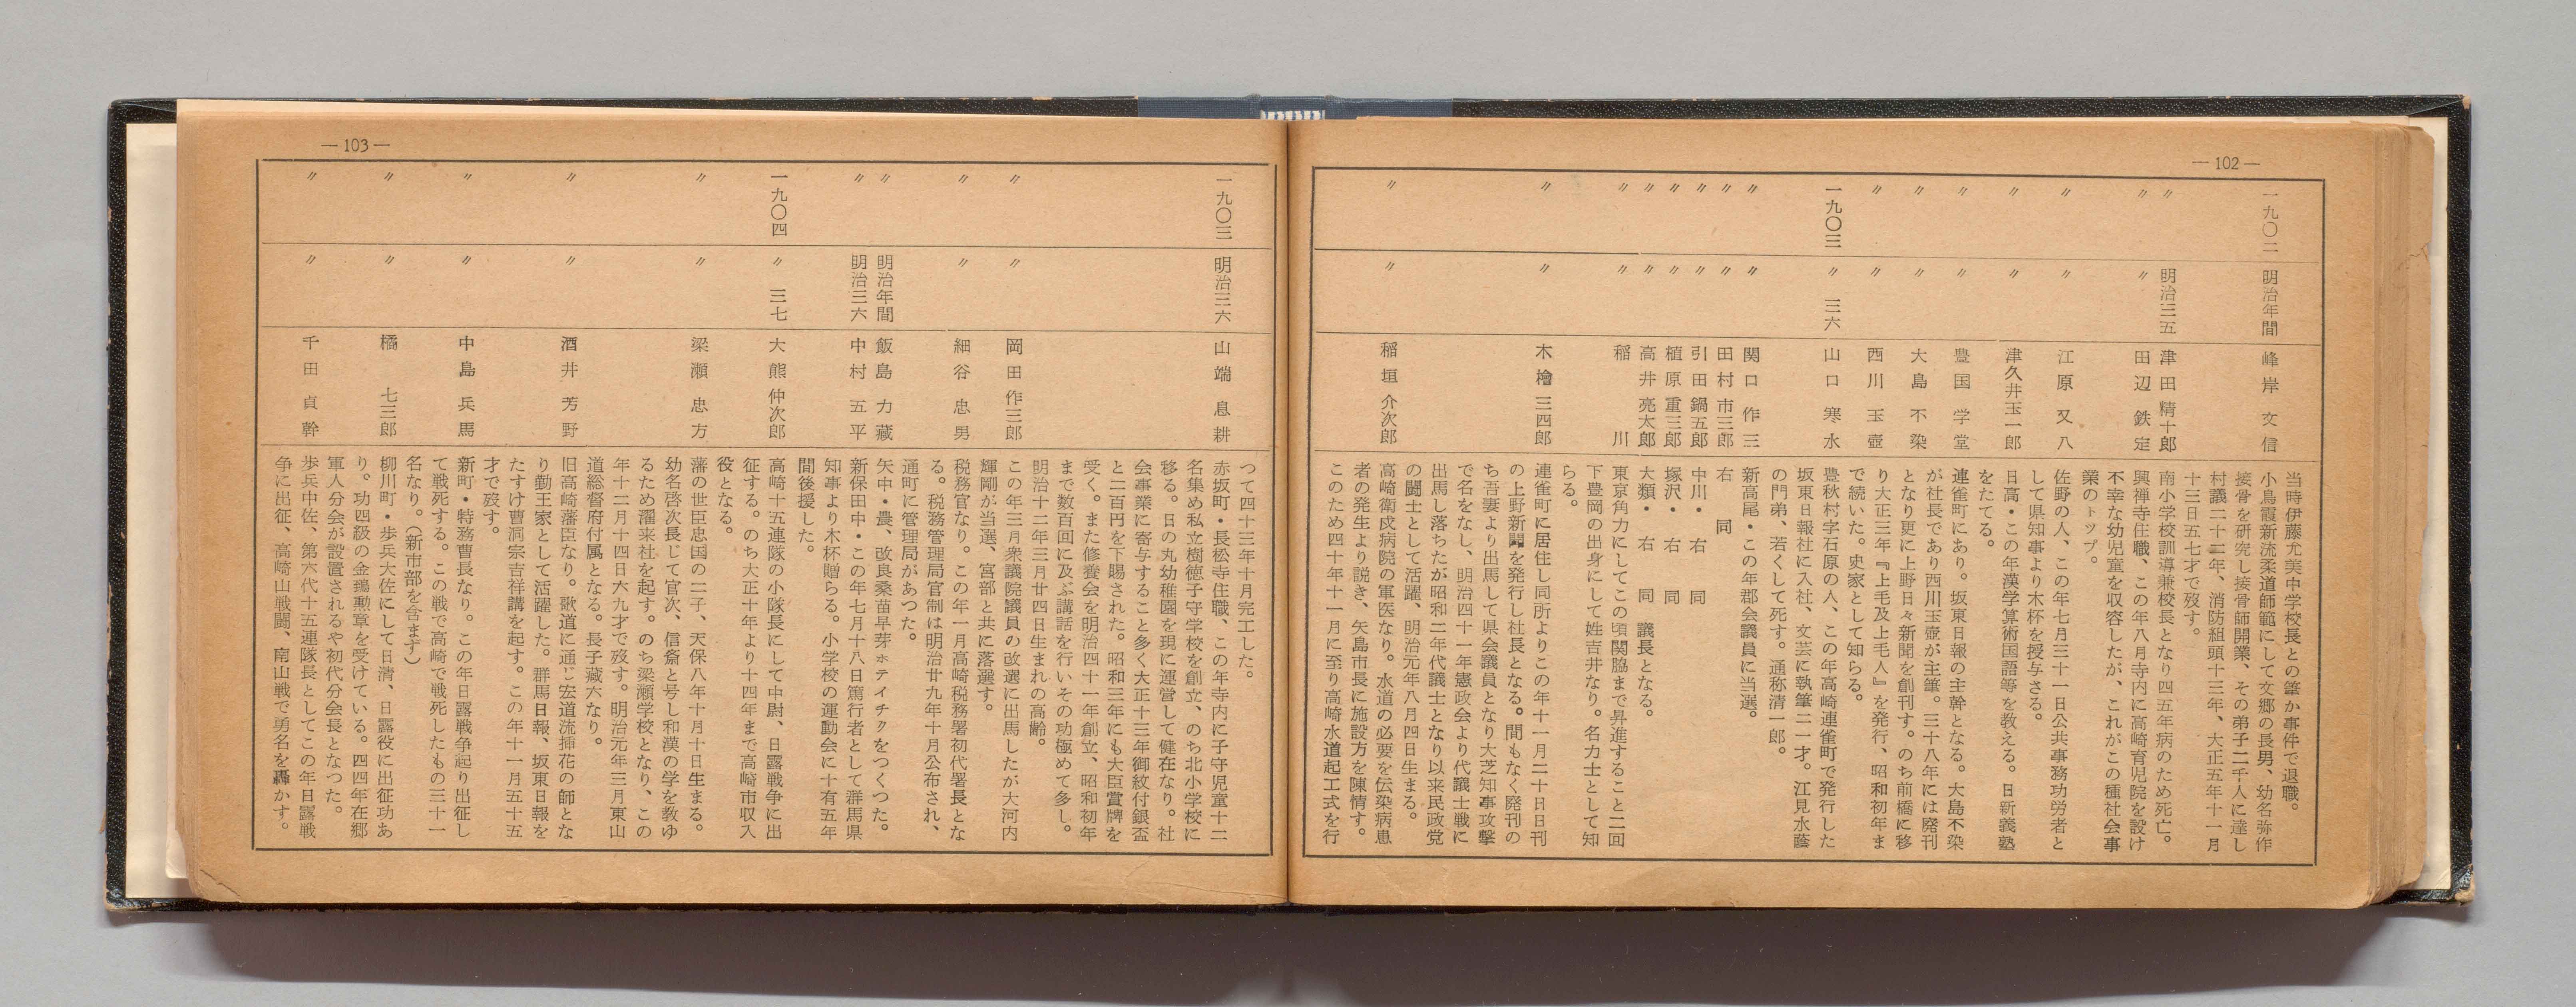 — 102 —
当時伊藤允美中学校長との筆か事件で退職。
一九〇二 明治年間 峰岸文信 小鳥霞新流柔道師範にして文郷の長男、幼名弥作
接骨を研究し接骨師開業、その弟子二千人に達し
村議二十二年、消防組頭十三年、大正五年十一月
十三日五七才で歿す。
〃 明治三五 津田精十郎 南小学校訓導兼校長となり四五年病のため死亡。
〃 〃 田辺鉄定 興禅寺住職、この年八月寺内に高崎育児院を設け
不幸な幼児童を収容したが、これがこの種社会事
業のトップ。
〃 〃 江原又八 佐野の人、この年七月三十一日公共事務功労者と
して県知事より木杯を授与さる。
〃 〃 津久井玉一郎 日高・この年漢学算術国語等を教える。日新義塾
をたてる。
〃 〃 豊国学堂 連雀町にあり。坂東日報の主幹となる。大島不染
が社長であり西川玉壺が主筆。三十八年には廃刊
〃 〃 大島不染 となり更に上野日々新聞を創刊す。のち前橋に移
り大正三年『上毛及上毛人』を発行、昭和初年ま
〃 〃 西川玉壺 で続いた。史家として知らる。
一九〇三 〃 三六 山口寒水 豊秋村字石原の人、この年高崎連雀町で発行した
坂東日報社に入社、文芸に執筆二一才。江見水蔭
の門弟、若くして死す。通称清一郎。
〃 〃 関口作三 新高尾・この年郡会議員に当選。
〃 〃 田村市三郎 右 同
〃 〃 引田鍋五郎 中川・右 同
〃 〃 植原重三郎 塚沢・右 同
〃 〃 高井亮太郎 大類・右 同 議長となる。
〃 〃 稲川 東京角力にしてこの頃関脇まで昇進すること二回
下豊岡の出身にして姓吉井なり。名力士として知
らる。
〃 〃 木檜三四郎 連雀町に居住し同所よりこの年十一月二十日日刊
の上野新聞を発行し社長となる。間もなく廃刊の
ち吾妻より出馬して県会議員となり大芝知事攻撃
で名をなし、明治四十一年憲政会より代議士戦に
出馬し落ちたが昭和二年代議士となり以来民政党
の闘士として活躍、明治元年八月四日生まる。
〃 〃 稲垣介次郎 高崎衛戍病院の軍医なり。水道の必要を伝染病患
者の発生より説き、矢島市長に施設方を陳情す。
このため四十年十一月に至り高崎水道起工式を行
— 103 —
つて四十三年十月完工した。
一九〇三 明治三六 山端息耕 赤坂町・長松寺住職、この年寺内に子守児童十二
名集め私立樹徳子守学校を創立、のち北小学校に
移る。日の丸幼稚園を現に運営して健在なり。社
会事業に寄与すること多く大正十三年御紋付銀盃
と二百円を下賜された。昭和三年にも大臣賞牌を
受く。また修養会を明治四十一年創立、昭和初年
まで数百回に及ぶ講話を行いその功極めて多し。
明治十二年三月廿四日生まれの高齢。
〃 〃 岡田作三郎 この年三月衆議院議員の改選に出馬したが大河内
輝剛が当選、宮部と共に落選す。
〃 〃 細谷忠男 税務官なり。この年一月高崎税務署初代署長とな
る。税務管理局官制は明治廿九年十月公布され、
通町に管理局があつた。
〃 明治年間 飯島力蔵 矢中・農、改良桑苗早芽ホテイチクをつくつた。
〃 明治三六 中村五平 新保田中・この年七月十八日篤行者として群馬県
知事より木杯贈らる。小学校の運動会に十有五年
間後援した。
一九〇四 〃 三七 大熊仲次郎 高崎十五連隊の小隊長にして中尉、日露戦争に出
征する。のち大正十年より十四年まで高崎市収入
役となる。
〃 〃 梁瀬忠方 藩の世臣忠国の二子、天保八年十月十日生まる。
幼名啓次長じて官次、信斎と号し和漢の学を教ゆ
るため濯来社を起す。のち梁瀬学校となり、この
年十二月十四日六九才で歿す。明治元年三月東山
道総督府付属となる。長子蔵六なり。
〃 〃 酒井芳野 旧高崎藩臣なり。歌道に通じ宏道流挿花の師とな
り勤王家として活躍した。群馬日報、坂東日報を
たすけ曹洞宗吉祥講を起す。この年十一月五十五
才で歿す。
〃 〃 中島兵馬 新町・特務曹長なり。この年日露戦争起り出征し
て戦死する。この戦で高崎で戦死したもの三十一
名なり。（新市部を含まず）
〃 〃 橘七三郎 柳川町・歩兵大佐にして日清、日露役に出征功あ
り。功四級の金鵄勲章を受けている。四四年在郷
軍人分会が設置されるや初代分会長となつた。
〃 〃 千田貞幹 歩兵中佐、第六代十五連隊長としてこの年日露戦
争に出征、高崎山戦闘、南山戦で勇名を轟かす。